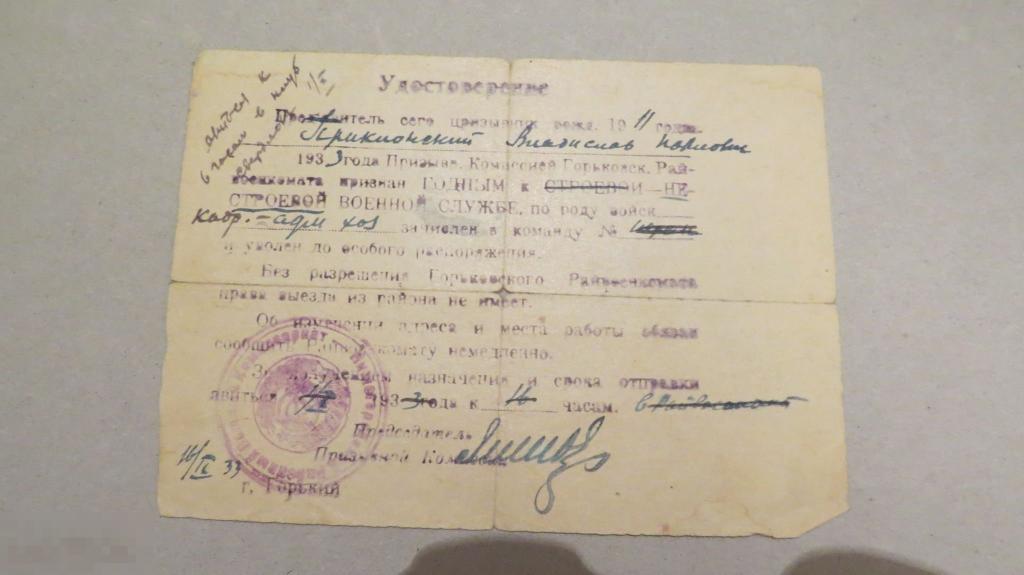 Удостоверение
явиться к
6 часам в клуб
1/X
Предъявитель сего призывник рожд. 1911 года.
Приклонский Владислав Павлович
1933 года Призыв. Комиссией Горьковск. Рай-
военкомата признан ГОДНЫМ к СТРОЕВОЙ НЕ-
СТРОЕВОЙ ВОЕННОЙ СЛУЖБЕ, по роду войск
кавр. = адм хоз зачислен в команду №
и уволен до особого распоряжения.
Без разрешения Горьковского Райвоенкомата
права выезда из района не имеет.
Об изменении адреса и места работы обязан
сообщить Райвоенкомату немедленно.
За получением назначения и срока отправки
явиться 1/X 1933 года к 16 часам. в Райвоенкомат
Председатель
Призывной Комиссии
16/IX 33
г. Горький